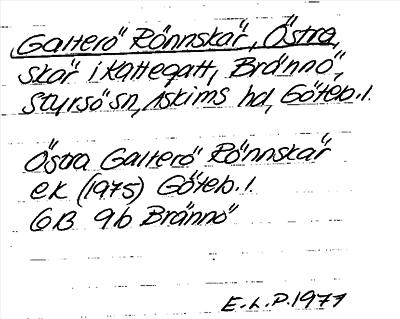 Galterö Rönnskär, Östra,
skär i Kattegatt, Brännö,
Styrsö sn, Askims hd, Göteb. l.
Östra Galterö Rönnskär
ek (1975) Göteb. l.
6B 9b Brännö
E.L.P. 1977